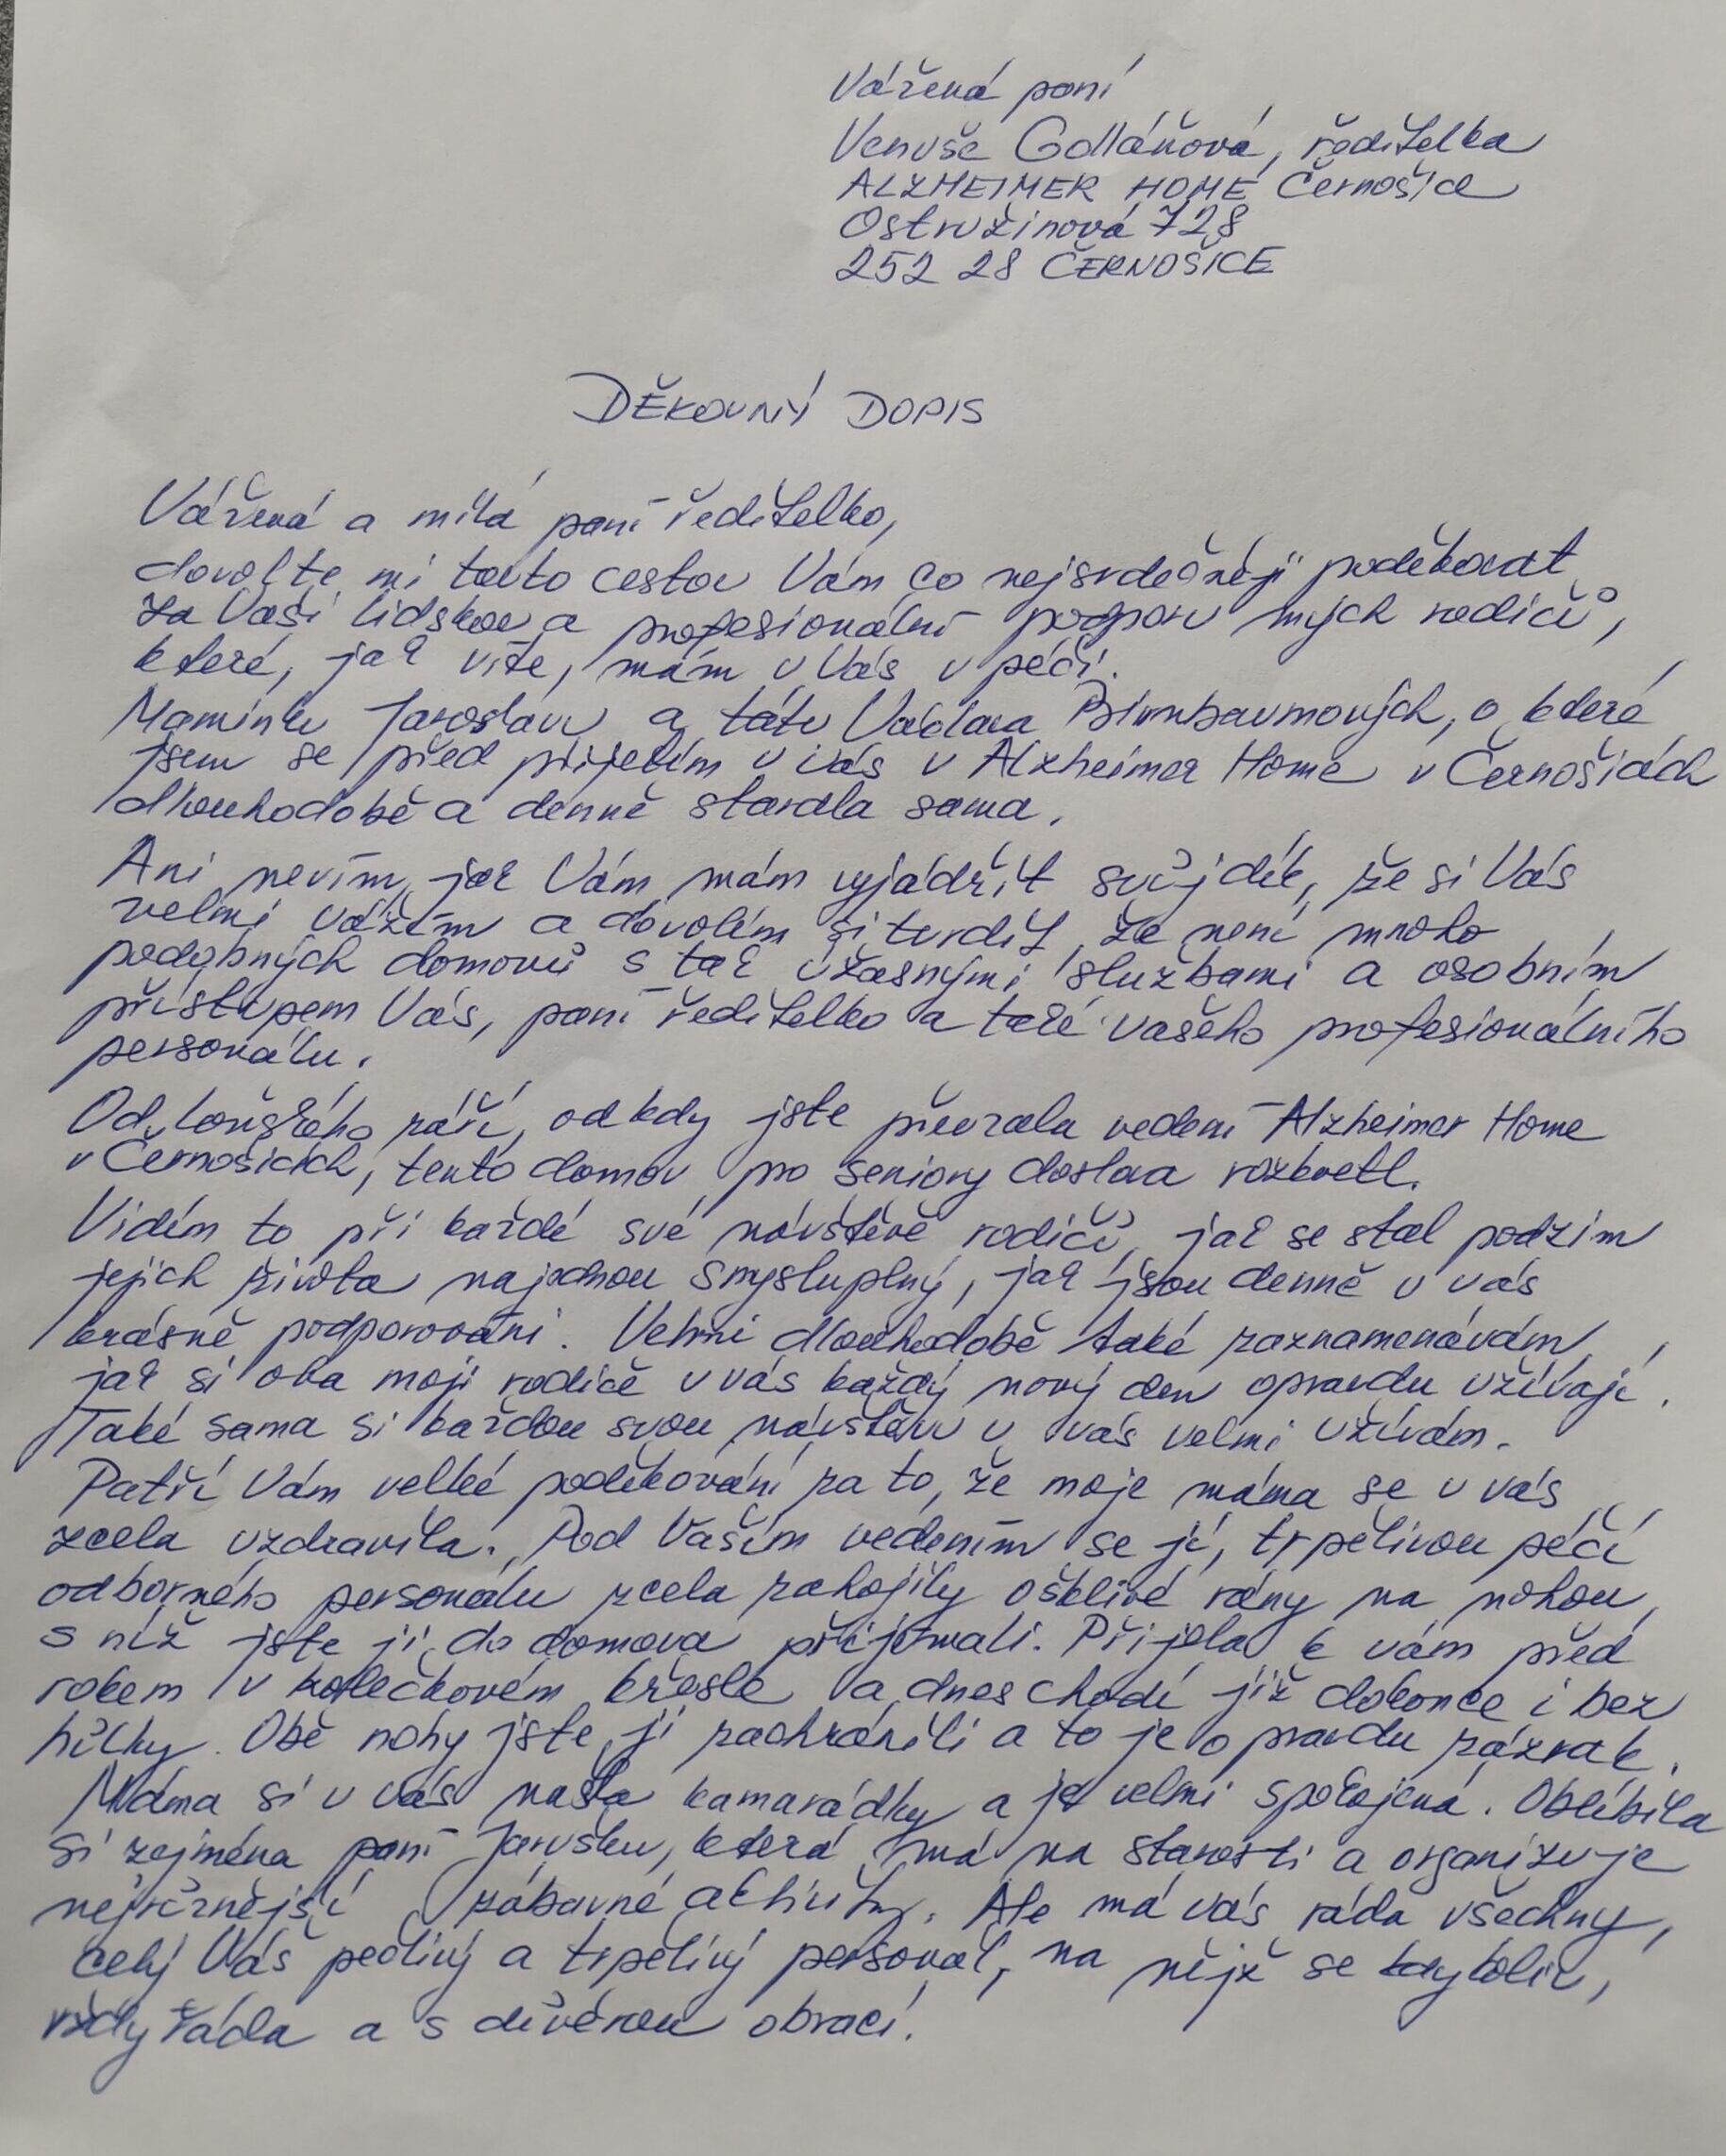 Vážená paní
Venuše Golláňová, ředitelka
ALZHEIMER HOME Černošice
Ostružinová 728
252 28 ČERNOŠICE
DĚKOVNÝ DOPIS
Vážená a milá paní ředitelko,
dovolte mi touto cestou Vám co nejsrdečněji poděkovat
za Vaši lidskou a profesionální podporu mých rodičů,
které, jak víte, mám u Vás v péči.
Maminku Jaroslavu a tátu Václava Birnbaumových, o které
jsem se před přijetím u vás v Alzheimer Home v Černošicích
dlouhodobě a denně starala sama.
Ani nevím, jak Vám mám vyjádřit svůj dík, že si Vás
velmi vážím a dovolím si tvrdit, že není mnoho
podobných domovů s tak úžasnými službami a osobním
přístupem Vás, paní ředitelko a také vašeho profesionálního
personálu.
Od loňského září, od kdy jste převzala vedení Alzheimer Home
v Černošicích, tento domov pro seniory doslova rozkvetl.
Vidím to při každé své návštěvě rodičů, jak se stal podzim
jejich života najednou smysluplný, jak jsou denně u vás
krásně podporováni. Velmi dlouhodobě také zaznamenávám,
jak si oba moji rodiče u vás každý nový den opravdu užívají.
Také sama si každou svou návštěvu u vás velmi užívám.
Patří Vám velké poděkování za to, že moje máma se u vás
zcela uzdravila. Pod Vaším vedením se jí, trpělivou péčí
odborného personálu zcela zahojily ošklivé rány na nohou,
s níž jste ji do domova přijímali. Přijela k vám před
rokem v kolečkovém křesle a dnes chodí již dokonce i bez
hůlky. Obě nohy jste jí zachránili a to je opravdu zázrak.
Máma si u vás našla kamarádky a je velmi spokojená. Oblíbila
si zejména paní Jarušku, která má na starosti a organizuje
nejrůznější zábavné aktivity. Ale má vás ráda všechny,
celý Váš pečlivý a trpělivý personál, na nějž se kdykoliv,
vždy ráda a s důvěrou obrací.